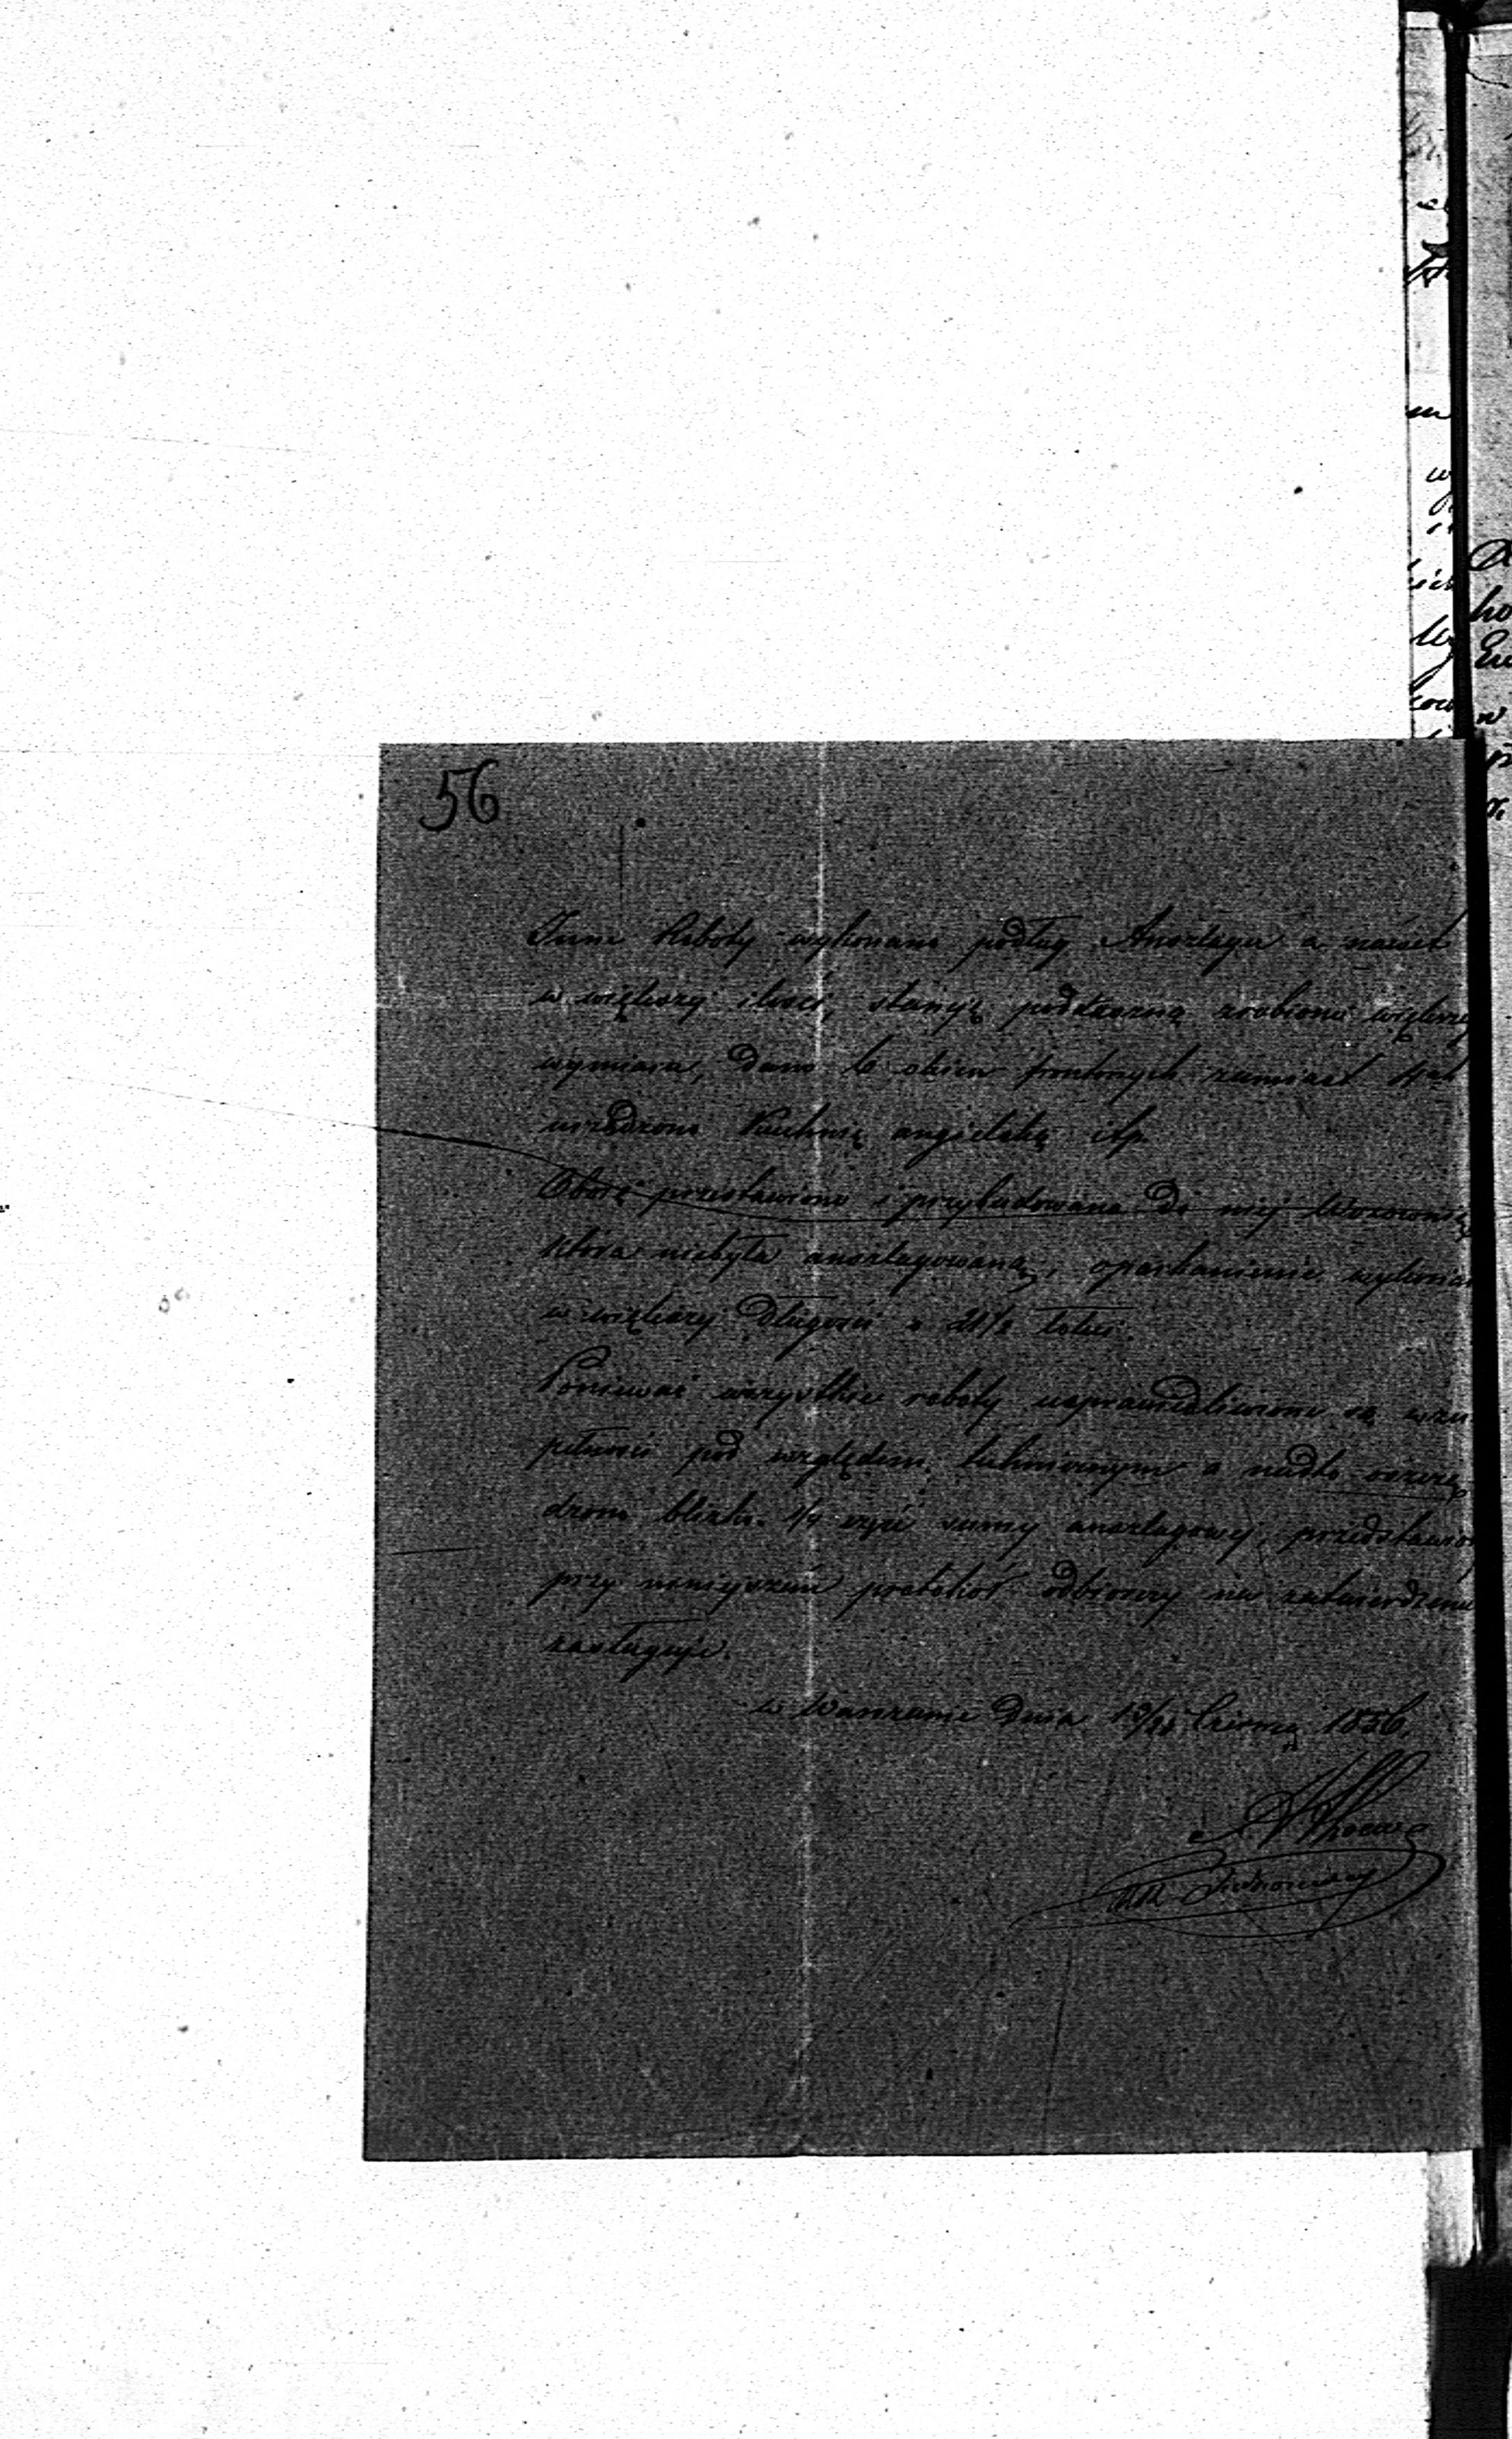 56
Inne Roboty wykonano podług Anszlagu a nawet
w większej ilości, stancję zrobiono większej
wymiaru, dano 6 okien frontowych zamiast 4ch
urządzono Kuchnię angielską itp.
Oborę przestawiono i przybudowano do niej Wozownię
która niebyła anszlagowaną, oparkanienie wykonan
w większej długości o 21 1/2 łokci.
Ponieważ wszystkie roboty usprawiedliwione są w zu
pełności pod względem technicznym a nadto oszczę
dzono blizko 1/4 część sumy anszlagowej, przedstawio
przy niniejszém protokół odbiorczy na zatwierdzenie
zasługuje.
w Warszawie dnia Czerwca 1856.